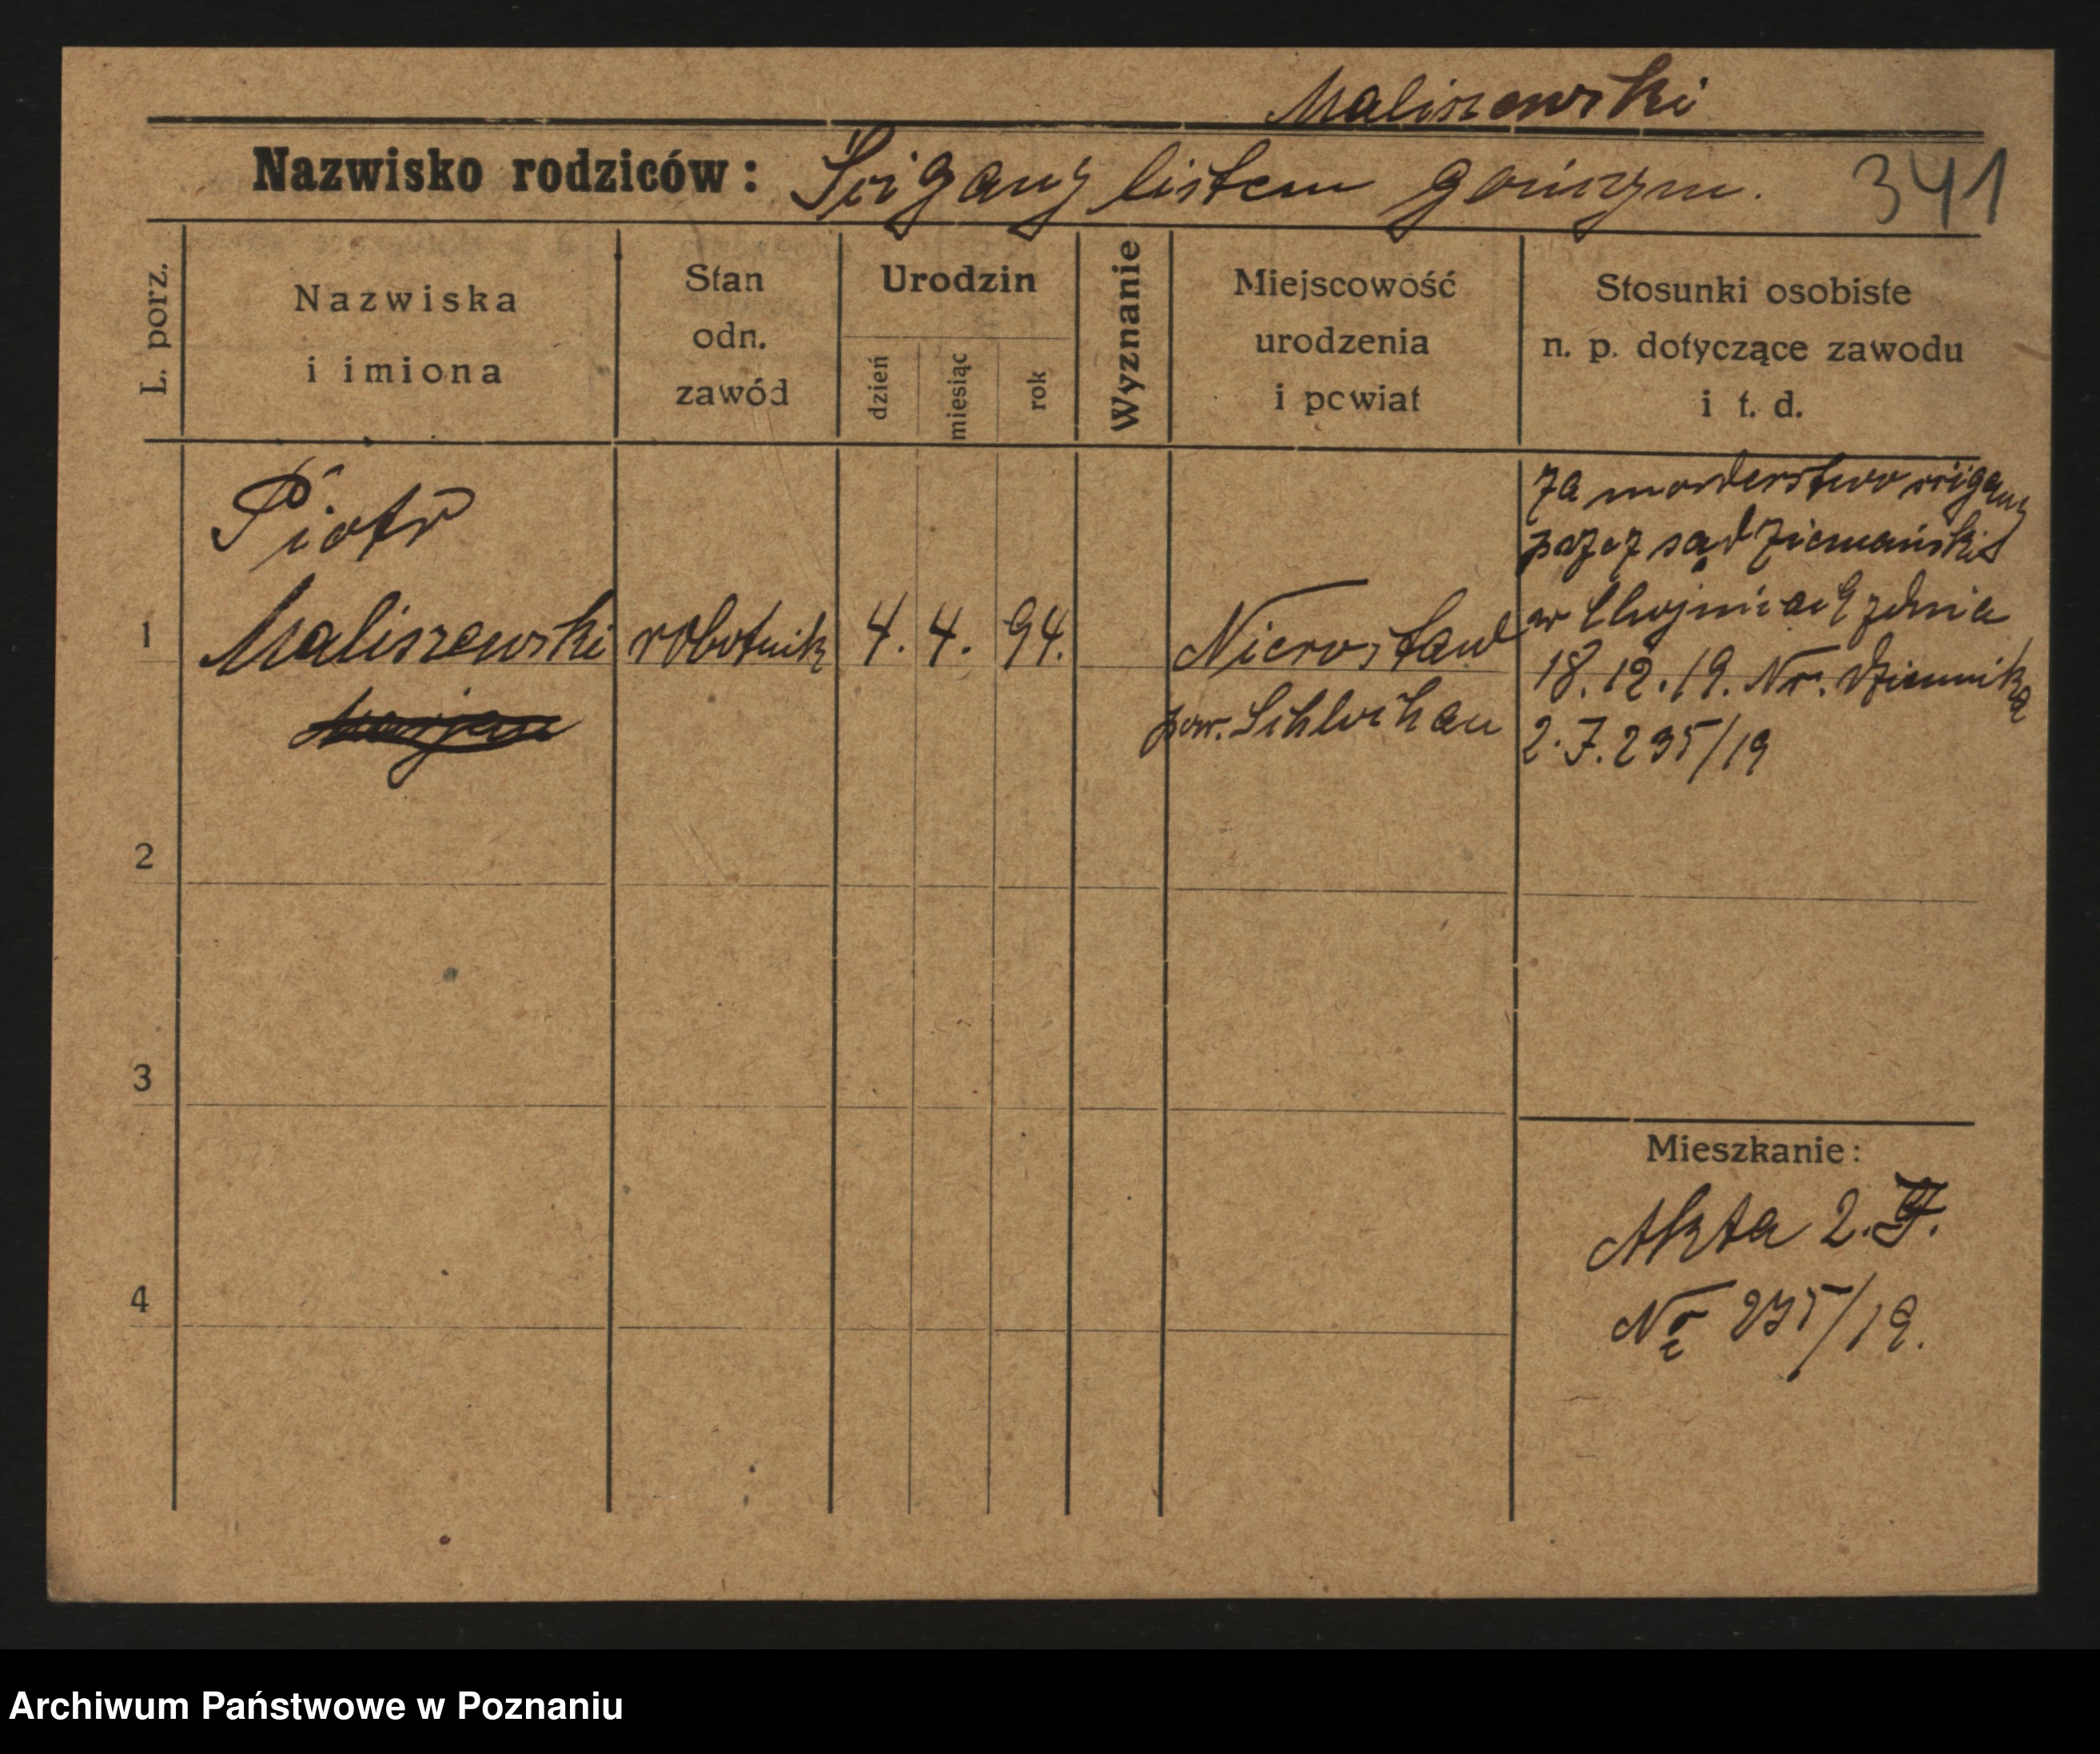 Maliszewski
Nazwisko rodziców: Ścigany listem gończym. 341
L. porz.
Nazwiska
i imiona
Stan
odn.
zawód
Urodzin
dzień
miesiąc
rok
Wyznanie
Miejscowość
urodzenia
i powiat
Stosunki osobiste
n. p. dotyczące zawodu
i t. d.
Piotr
1 Maliszewski robotnik 4. 4. 94.
pow. Schlochau
za morderstwo ścigany
przez sąd Ziemiański
w Chojnicach z dnia
18.12.19. Nr. dziennika
2.J.235/19
2
3
4
Mieszkanie:
Akta 2.J.
Nr 235/19.
Archiwum Państwowe w Poznaniu